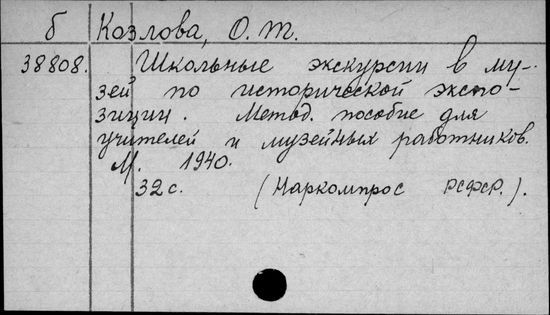 б Козлова, О. Т.
38808. Школьные экскурсии в му-
зей по исторической экспо-
зиции. Метод. пособие для
учителей и музейных работников.
М. 1940.
32 с. (Наркомпрос РСФСР.).